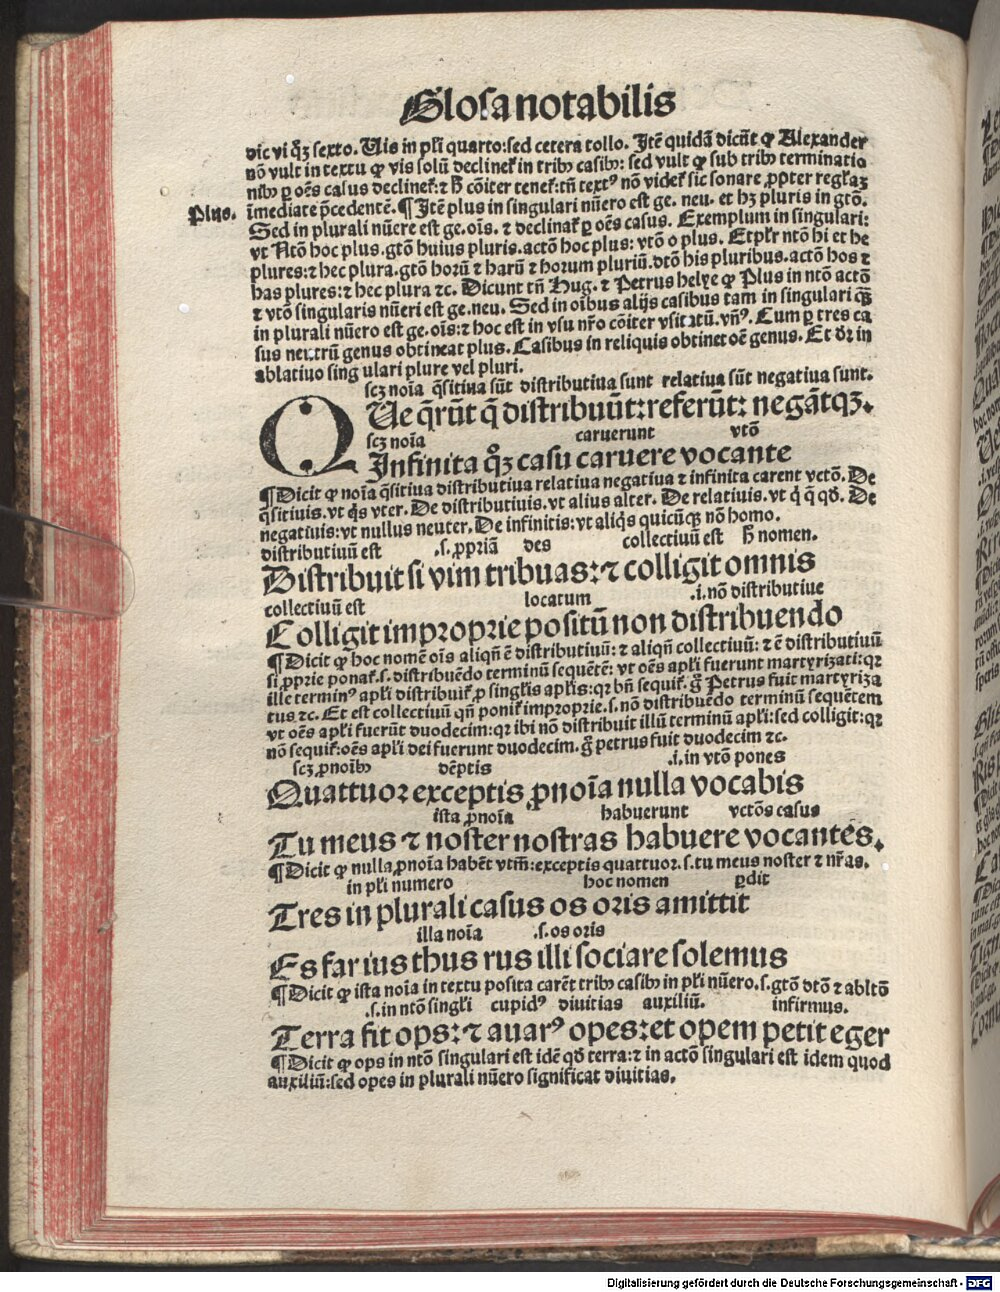 Glosa notabilis
dic vi qȝ sexto. Uis in pľi quarto: sed cetera tollo. Itē quidā dicūt ꝙ Alexander
nō vult in textu ꝙ vis solū declineť in tribꝰ casibꝰ: sed vult ꝙ sub tribꝰ terminatio
nibꝰ ꝑ oēs casus declineť: ⁊ ħ cōiter teneť: tñ textꝰ nō videť sic sonare ꝓpter regľaȝ
Plus.
īmediate p̄cedentē. ¶ Itē plus in singulari nūero est ge. neu. et hȝ pluris in gtō.
Sed in plurali nūere est ge. oīs. ⁊ declinať ꝑ oēs casus. Exemplum in singulari:
vt Ntō hoc plus. gtō huius pluris. actō hoc plus: vtō o plus. Et pľr ntō hi et he
plures: ⁊ hec plura. gtō horū ⁊ harū ⁊ horum pluriū. dtō his pluribus. actō hos ⁊
has plures: ⁊ hec plura ⁊c. Dicunt tñ Hug. ⁊ Petrus helye ꝙ Plus in ntō actō
⁊ vtō singularis nūeri est ge. neu. Sed in oībus alijs casibus tam in singulari qȝ̄
in plurali nūero est ge. oīs: ⁊ hoc est in vsu nřo cōiter vsitatū. vñꝰ. Cum ꝑ tres ca
sus neutrū genus obtineat plus. Casibus in reliquis obtinet oē genus. Et dř in
ablatiuo sing ulari plure vel pluri.
scȝ noīa q̄sitiua sūt distributiua sunt relatiua sūt negatiua sunt.
QUe q̄rūt q̄ distribuūt: referūt: negātqȝ.
scȝ noīa caruerunt vtō
Infinita qȝ casu caruere vocante
¶ Dicit ꝙ noīa q̄sitiua distributiua relatiua negatiua ⁊ infinita carent vctō. De
q̄sitiuis. vt q̇s vter. De distributiuis. vt alius alter. De relatiuis. vt q̇ q̄ qđ. De
negatiuis: vt nullus neuter. De infinitis: vt aliq̇s quicūqȝ nō homo.
distributiuū est .s. ꝓpriā des collectiuū est ħ nomen.
Distribuit si vim tribuas: ⁊ colligit omnis
collectiuū est locatum .i. nō distributiue
Colligit improprie positū non distribuendo
¶ Dicit ꝙ hoc nomē oīs aliqñ ē distributiuū: ⁊ aliqñ collectiuū: ⁊ ē distributiuū
si ꝓprie ponať. s. distribuēdo terminū sequētē: vt oēs apľi fuerunt martyrizati: qꝛ
ille terminꝰ apľi distribuiť ꝓ singľis apľis: qꝛ bñ sequiť. g̊ Petrus fuit martyriza
tus ⁊c. Et est collectiuū qñ poniť improprie. s. nō distribuēdo terminū sequētem
vt oēs apľi fuerūt duodecim: qꝛ ibi nō distribuit illū terminū apľi: sed colligit: qꝛ
nō sequiť: oēs apľi dei fuerunt duodecim. g̊ petrus fuit duodecim ⁊c.
scȝ ꝓnoībꝰ dēptis .i. in vtō pones
Quattuor exceptis ꝓnoīa nulla vocabis
ista ꝓnoīa habuerunt vctōs casus
Tu meus ⁊ noster nostras habuere vocantes.
¶ Dicit ꝙ nulla ꝓnoīa habēt vtm̄: exceptis quattuor. s. tu meus noster ⁊ nřas.
in pľi numero hoc nomen ꝑdit
Tres in plurali casus os oris amittit
illa noīa .s. os oris
Es far ius thus rus illi sociare solemus
¶ Dicit ꝙ ista noīa in textu posita carēt tribꝰ casibꝰ in pľi nūero. s. gtō dtō ⁊ abltō
.s. in ntō singľi cupidꝰ diuitias auxiliū. infirmus.
Terra fit ops: ⁊ auarꝰ opes: et opem petit eger
¶ Dicit ꝙ ops in ntō singulari est idē qđ terra: ⁊ in actō singulari est idem quod
auxiliū: sed opes in plurali nūero significat diuitias.
Digitalisierung gefördert durch die Deutsche Forschungsgemeinschaft - DFG